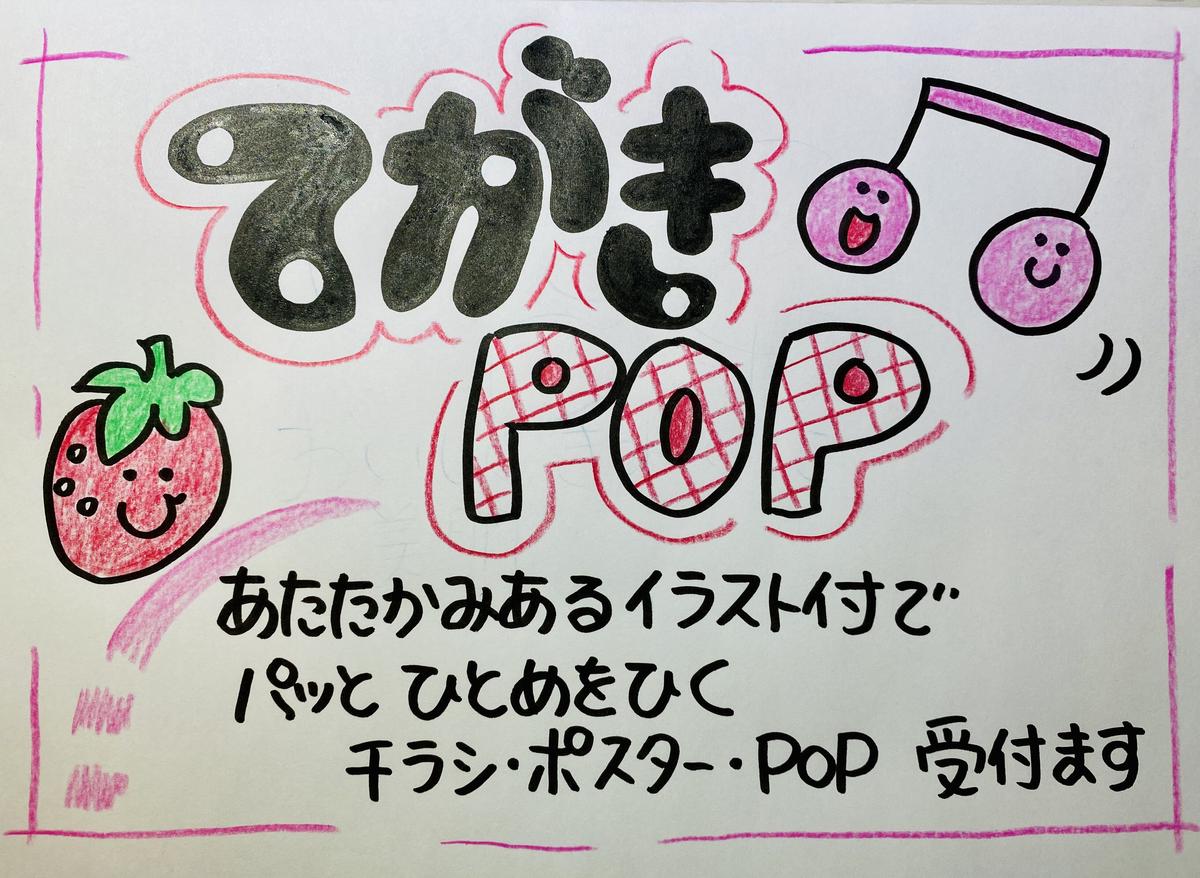 てがき
POP
あたたかみあるイラスト付で
パッと ひとめをひく
チラシ・ポスター・POP 受付ます